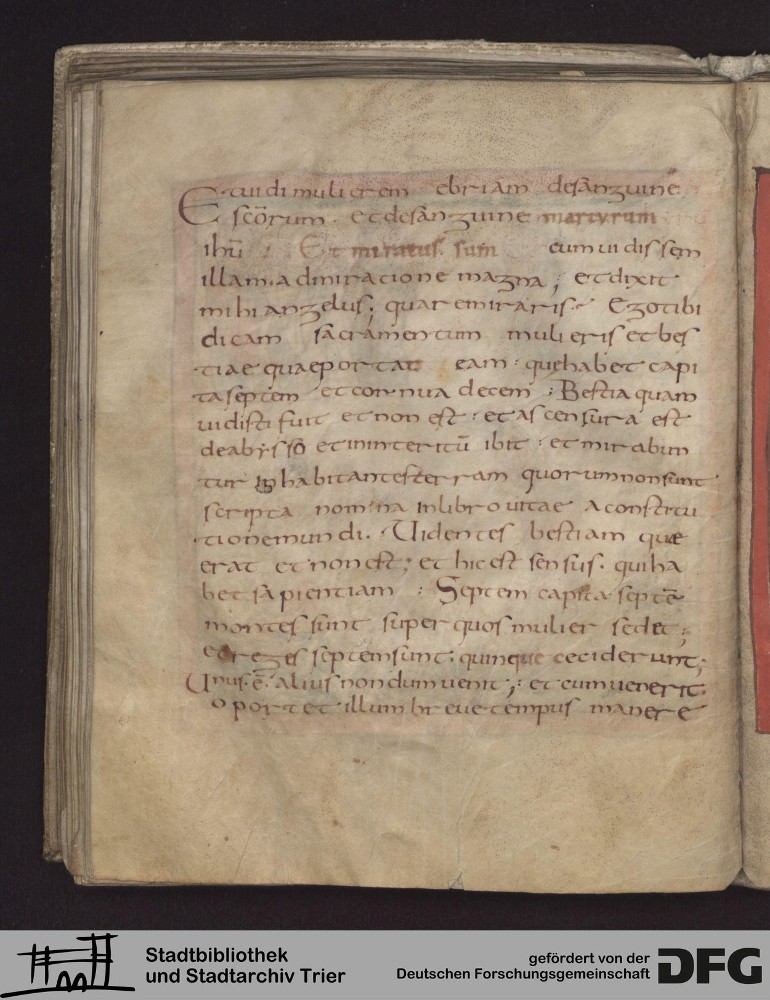 Et uidi mulierem ebriam desanguine
scōrum · et desanguine martyrum
ihū · Et miratus sum cum uidissem
illam · admiratione magna ; et dixit
mihi angelus ; quare miraris · Ego tibi
dicam sacramentum mulieris et bes
tiae quae portat eam · que habet capi
ta septem et cornua decem · Bestia quam
uidisti fuit et non est : et ascensura est
de abysso et in interitū ibit : et mirabun
tur inhabitantes terram quorum non sunt
scripta nomina in libro uitae a constitu
tione mundi · Uidentes bestiam quae
erat et non est ; et hic est sensus · qui ha
bet sapientiam : Septem capita septē
montes sunt super quos mulier sedet ;
et reges septem sunt · quinque ceciderunt ;
Unus · ē · alius nondum uenit ; et cum uenerit ·
oportet illum breue tempus manere
Stadtbibliothek
und Stadtarchiv Trier
gefördert von der
Deutschen Forschungsgemeinschaft
DFG